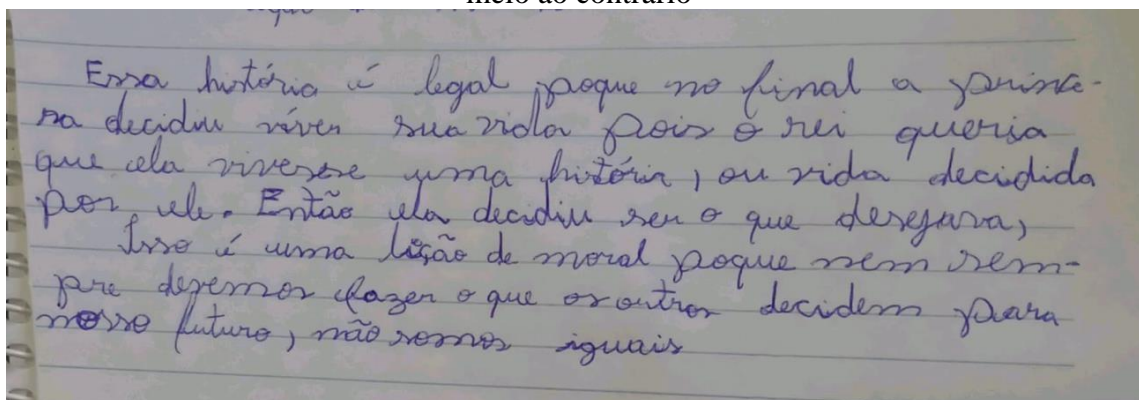 meio ao contrário
Essa história é legal poque no final a prince-
sa decidiu viver sua vida pois o rei queria
que ela vivesse uma história, ou vida decidida
por ele. Então ela decidiu ser o que desejava,
Isso é uma lição de moral poque nem sem-
pre devemos fazer o que os outros decidem para
nosso futuro, não somos iguais